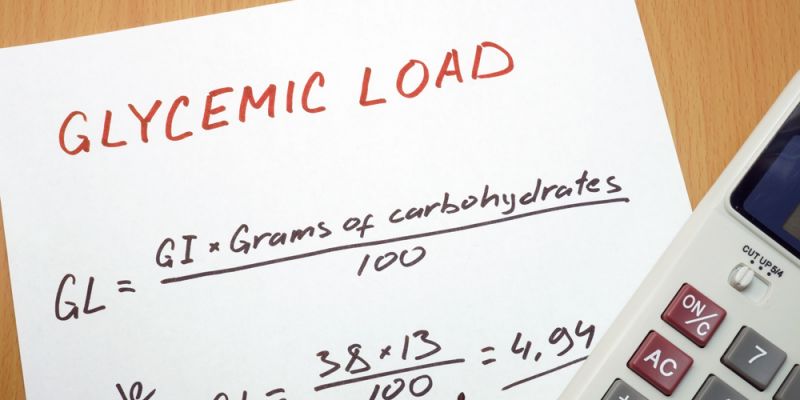 GLYCEMIC LOAD
GL = GI × Grams of carbohydrates
100
38 × 13
100
= 4,94
CUT UP 5/4
ON/C
AC
7